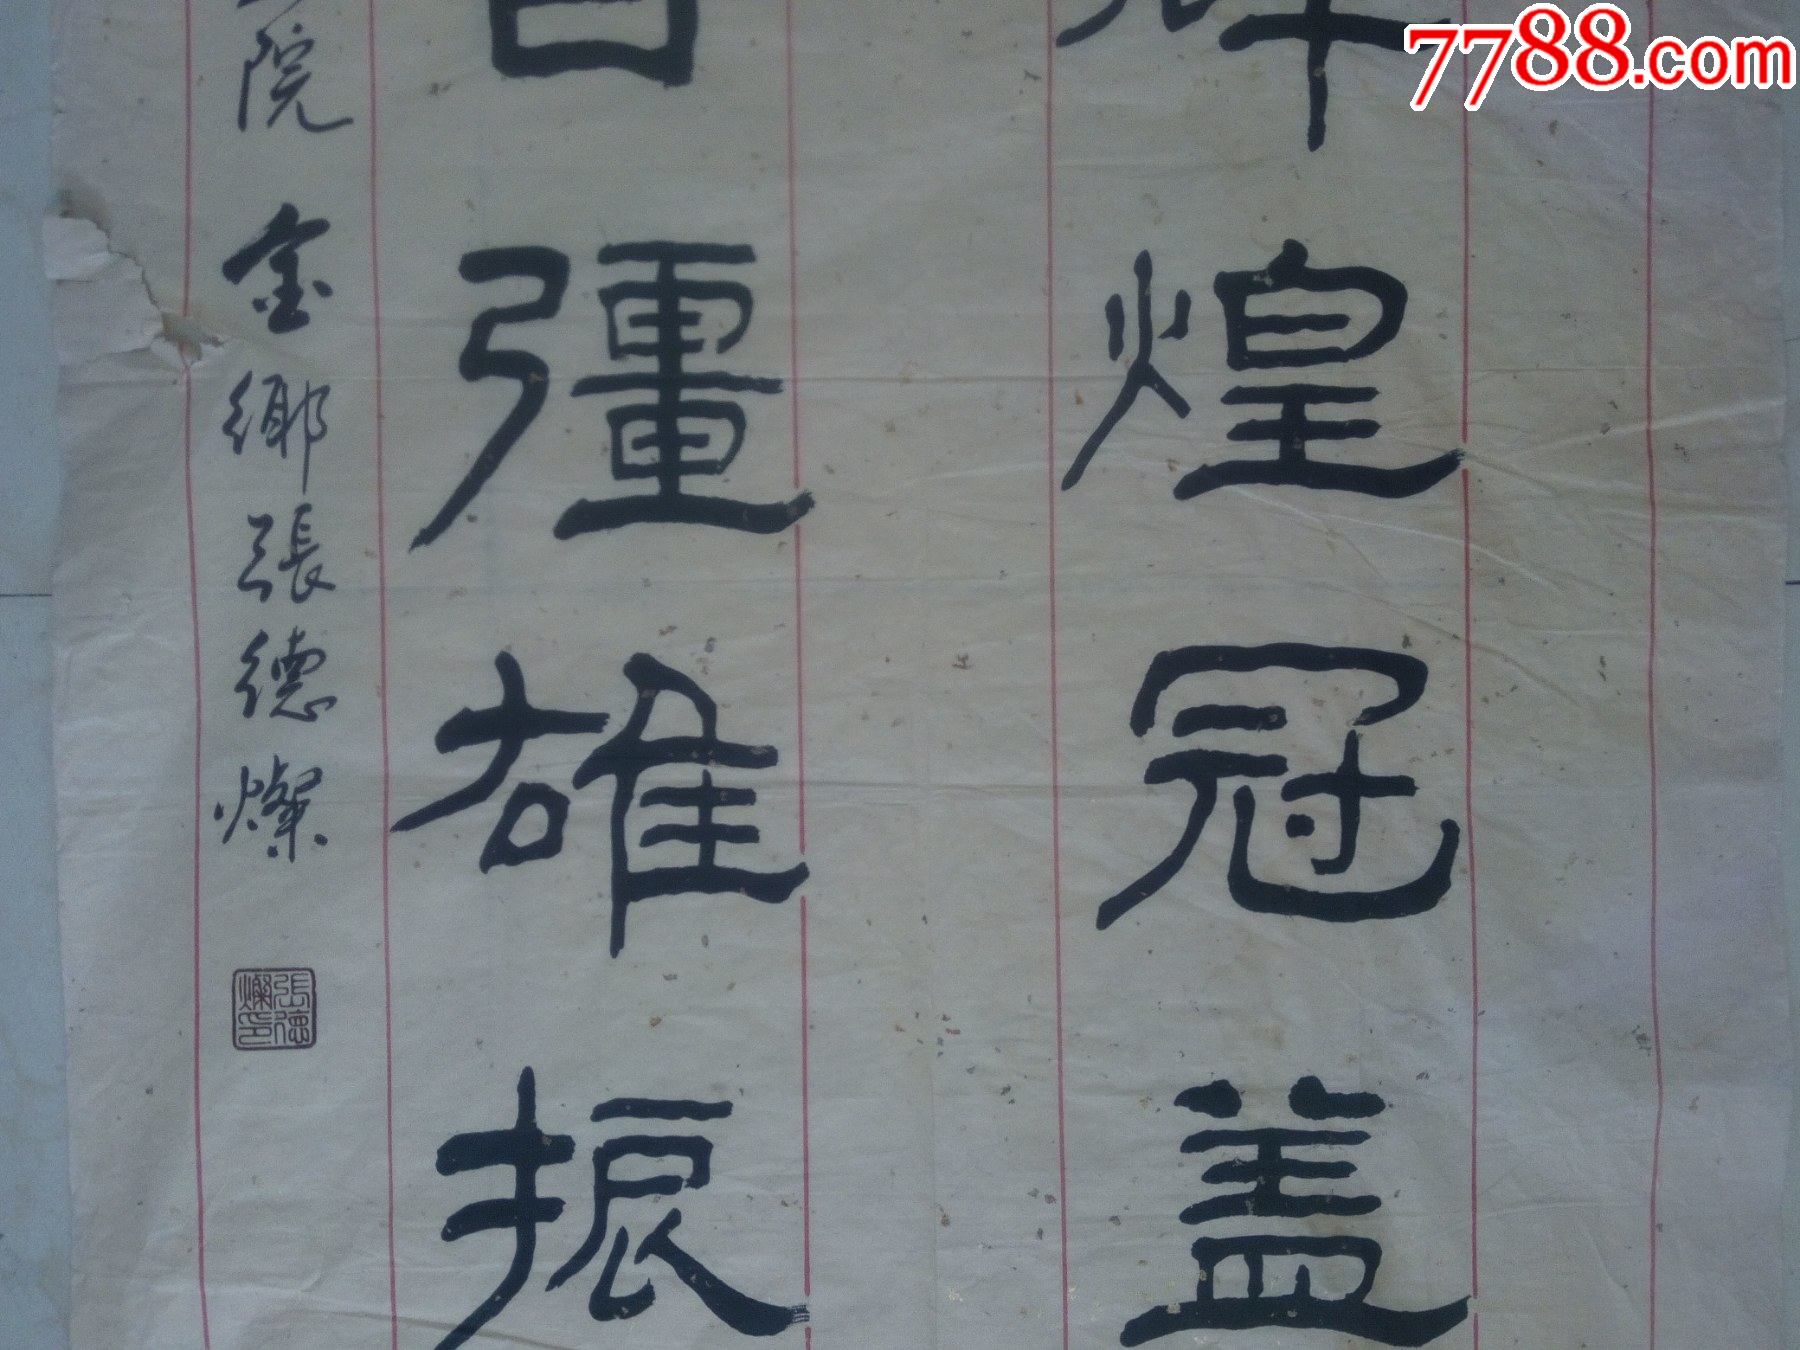 7788.com
煌冠盖
彊雄振
院金鄉張德燦
張德燦印